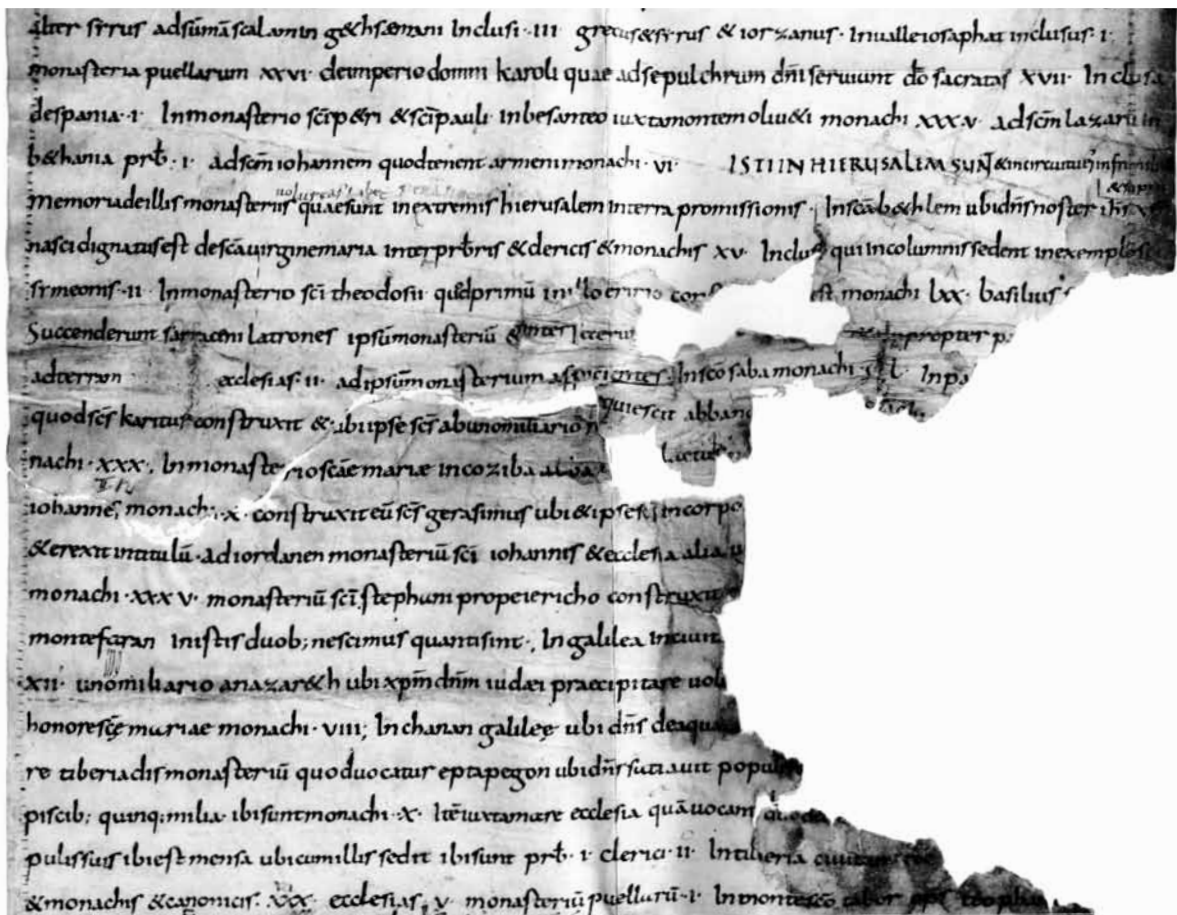 alter syrus adsūmā scalam in g&hsæmani Inclusi · III · grecus & syrus & iorzanus · Inualle iosaphat inclusus · I ·
monasteria puellarum XXVI · deimperio domni karoli quae adsepulchrum dñi seruiunt dō sacratas XVII · Inclusa
despania · I · Inmonasterio scī p&ri & scī pauli in besanteo iuxtamontem oliu&i monachi XXXV · adscm̄ lazarū in
b&hania prb̄ · I · adscm̄ iohannem quodtenent armeni monachi · VI · ISTI IN HIERUSALEM SUNT & incircuitu
memoria deillis monasteriis quaesunt inextremis hierusalem interra promissionis · Inscā b&hlem ubi dn̄s noster ih̄s xp̄s
nasci dignatusest descā uirginemaria interprb̄ris & clericis & monachis XV · Inclusi qui incolumnis sedent inexemplo scī
symeonis · II · Inmonasterio scī theodosii quodprimū inillo erimo est monachi LXX · basilius
Succenderunt sarraceni latrones ipsūmonasteriū & inter propter
adterram ecclesias · II · adipsūmonasterium aspicientes Inscō saba monachi · CL · Inpa
quodscs̄ karitus construxit & ubi ipse scs̄ abunomiliario quiescit abba
nachi · XXX · Inmonasterio scāe mariæ incoziba
iohannes monachi · X · construxit eū scs̄ gerasimus ubi & ipse incorpo
& erexit intitulū · adiordanen monasteriū scī iohannis & ecclesia alia
monachi · XXXV · monasteriū scī stephani propeiericho construxit
montefaran Inistis duob; nescimus quantisint · Ingalilea inciuit
XII · unomiliario anazar&h ubi xpm̄ dnm̄ iudæi praecipitare uol
honore scę mariae monachi · VIII; Inchanan galileę ubi dn̄s deaqua
re tiberiadis monasteriū quoduocatur eptapegon ubi dn̄s satiauit popul
piscib; quinq; milia · ibisuntmonachi · X · Itē iuxtamare ecclesia quāuocant
pulissuis ibiest mensa ubicumillis sedit ibisunt prb̄ · I · clerici · II · Intiberia ciuitate
& monachis & canonicis · XXX · ecclesias · V · monasteriū puellarū · I · Inmontescō tabor eps̄ theophan